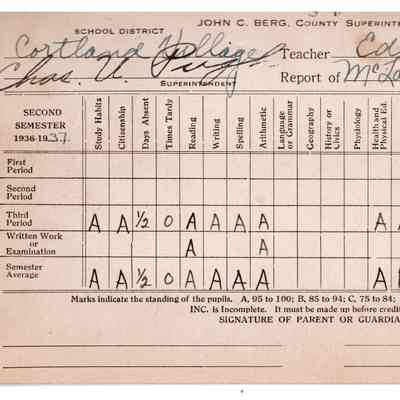 JOHN C. BERG, COUNTY SUPERINTE
SCHOOL DISTRICT
Cortland Village Teacher Ed
Chas. A. SUPERINTENDENT Report of McLa
SECOND SEMESTER 1936-1937 Study Habits Citizenship Days Absent Times Tardy Reading Writing Spelling Arithmetic Language or Grammar Geography History or Civics Physiology Health and Physical Ed.
First Period
Second Period
Third Period A A ½ 0 A A A A A
Written Work or Examination A A
Semester Average A A ½ 0 A A A A A
Marks indicate the standing of the pupils. A, 95 to 100; B, 85 to 94; C, 75 to 84;
INC. is Incomplete. It must be made up before credi
SIGNATURE OF PARENT OR GUARDIA